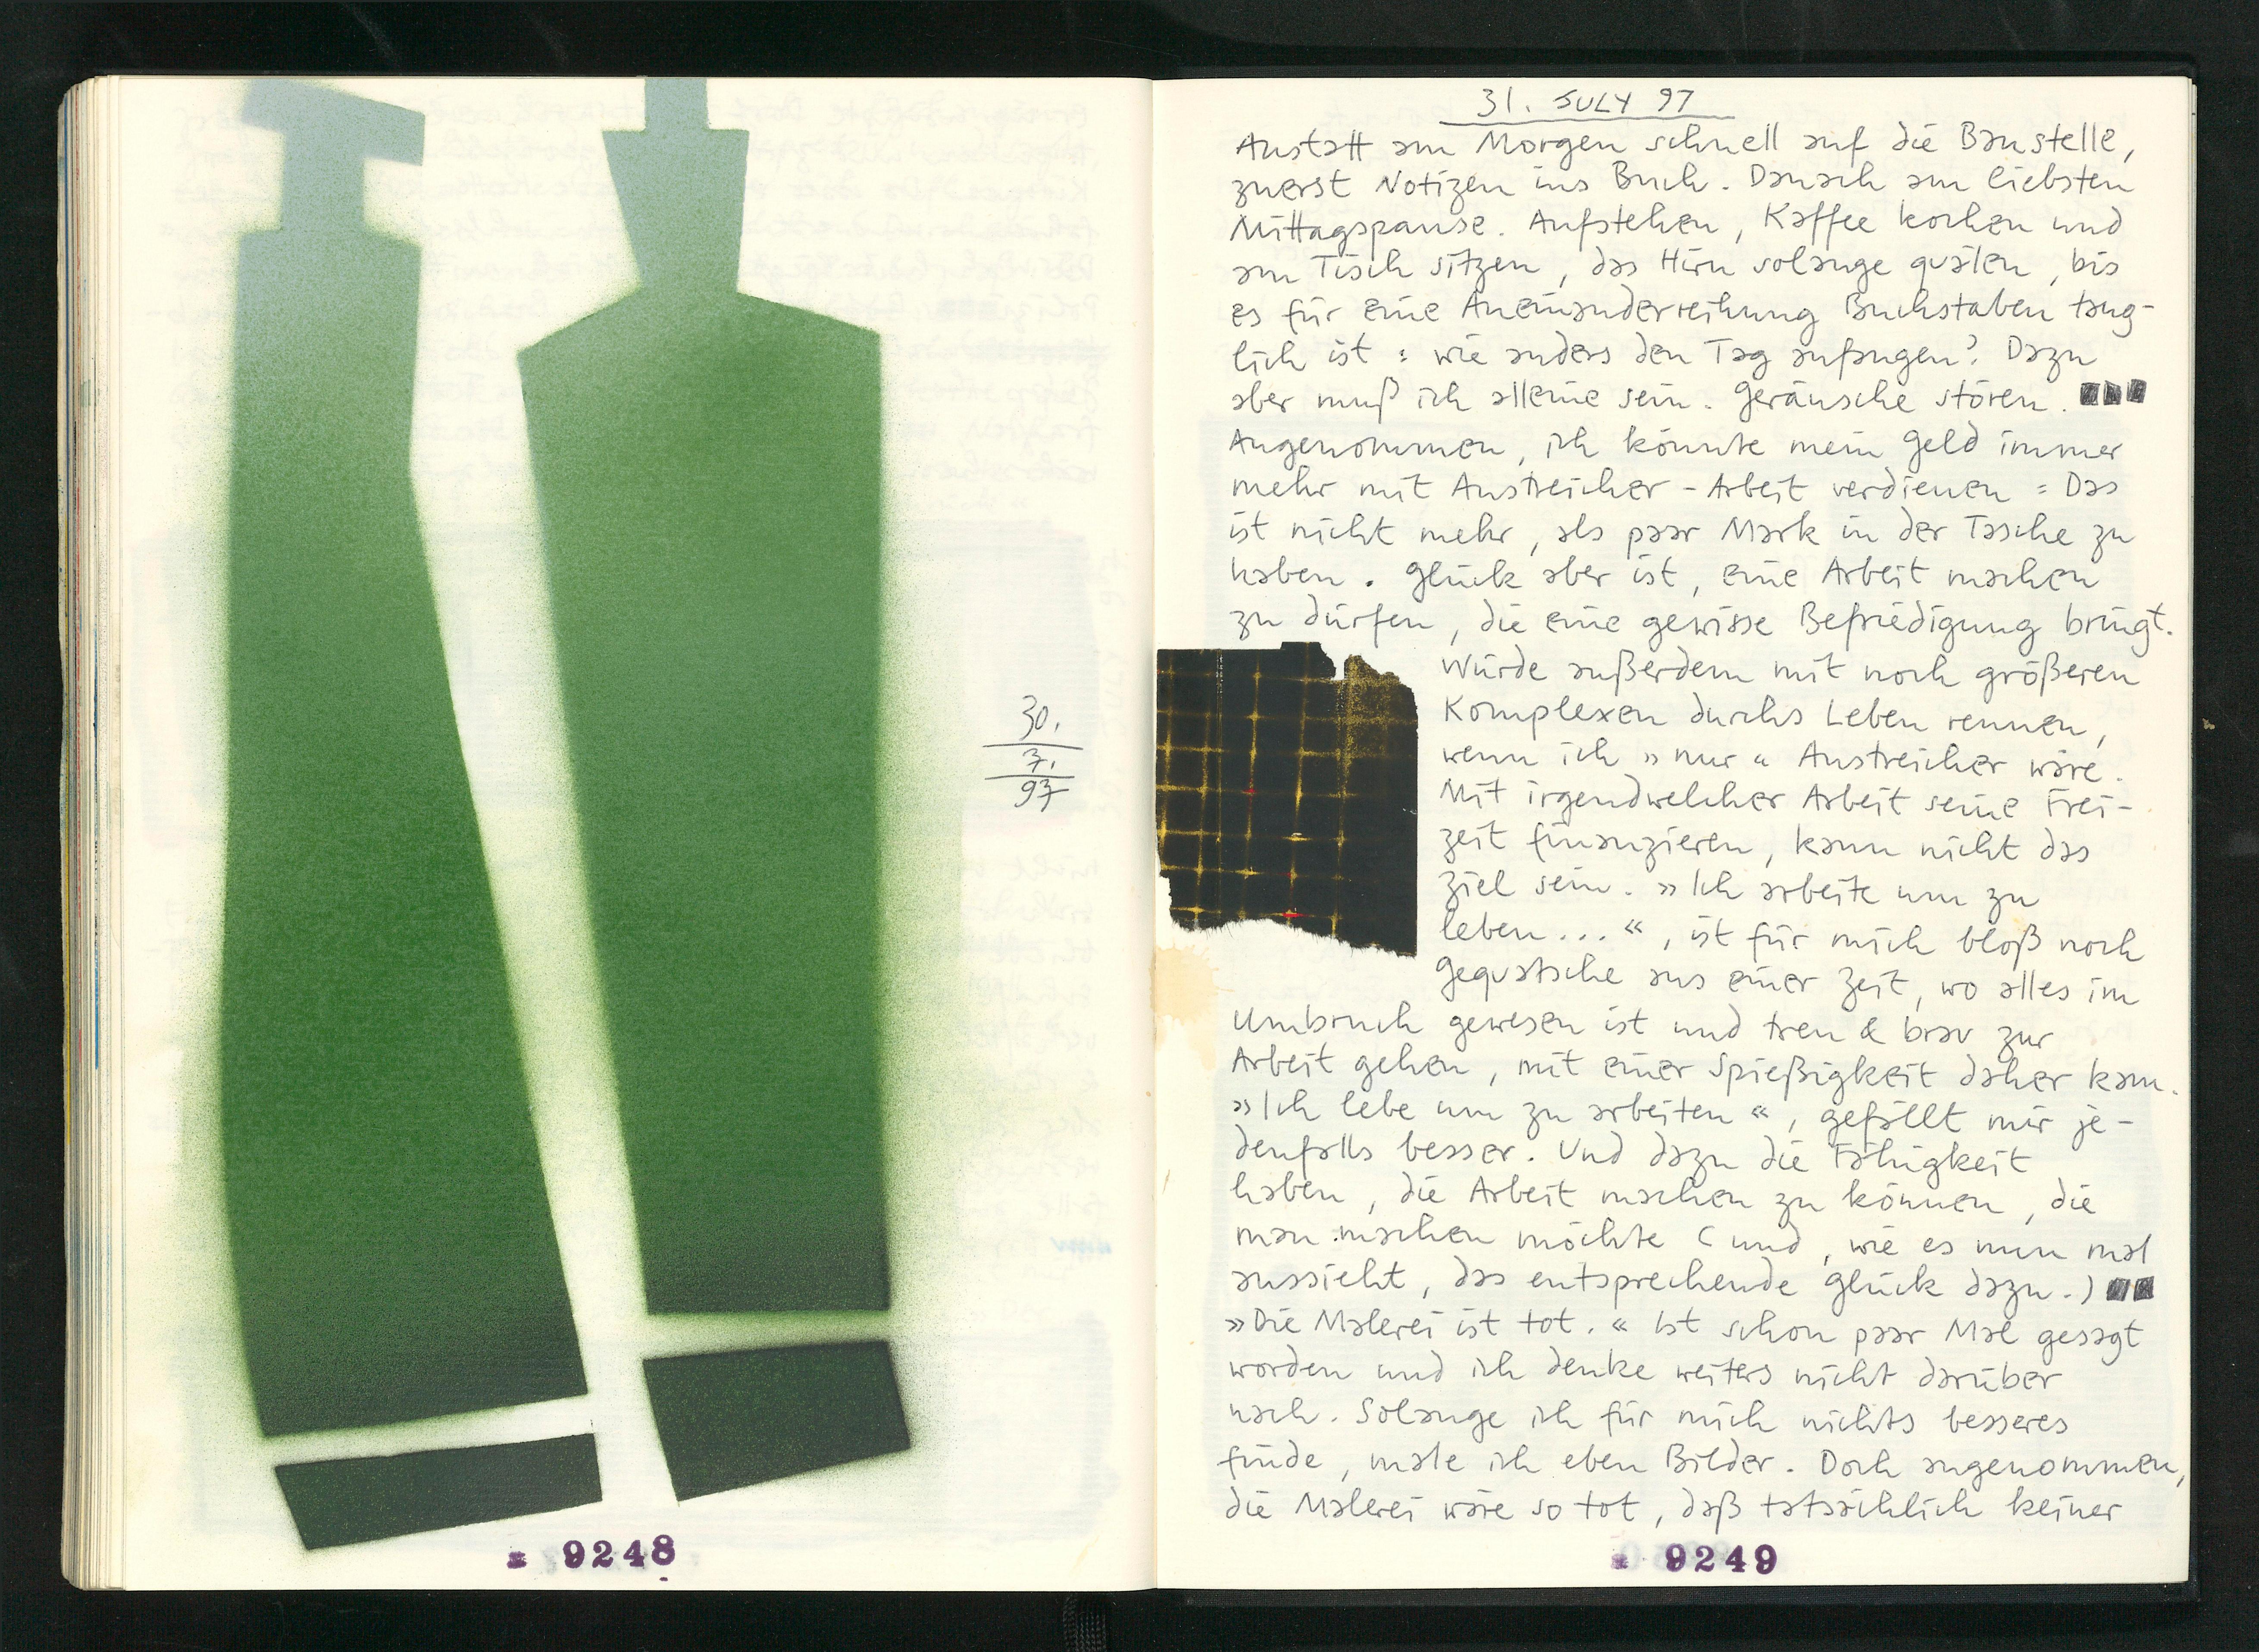 30.
7.
97
9248
31. JULY 97
Anstatt am Morgen schnell auf die Baustelle,
zuerst Notizen ins Buch. Danach am liebsten
Mittagspause. Aufstehen, Kaffee kochen und
am Tisch sitzen, das Hirn solange quälen, bis
es für eine Aneinanderreihung Buchstaben taug-
lich ist: wie anders den Tag anfangen? Dazu
aber muß ich alleine sein. Geräusche stören.
Angenommen, ich könnte mein Geld immer
mehr mit Anstreicher-Arbeit verdienen: Das
ist nicht mehr, als paar Mark in der Tasche zu
haben. Glück aber ist, eine Arbeit machen
zu dürfen, die eine gewisse Befriedigung bringt.
Würde außerdem mit noch größeren
Komplexen durchs Leben rennen,
wenn ich »nur« Anstreicher wäre.
Mit irgendwelcher Arbeit seine Frei-
zeit finanzieren, kann nicht das
Ziel sein. »Ich arbeite um zu
leben...«, ist für mich bloß noch
Gequatsche aus einer Zeit, wo alles im
Umbruch gewesen ist und treu & brav zur
Arbeit gehen, mit einer Spießigkeit daher kam.
»Ich lebe um zu arbeiten«, gefällt mir je-
denfalls besser. Und dazu die Fähigkeit
haben, die Arbeit machen zu können, die
man machen möchte (und, wie es nun mal
aussieht, das entsprechende Glück dazu.)
»Die Malerei ist tot.« Ist schon paar Mal gesagt
worden und ich denke weiters nicht darüber
nach. Solange ich für mich nichts besseres
finde, male ich eben Bilder. Doch angenommen,
die Malerei wäre so tot, daß tatsächlich keiner
9249